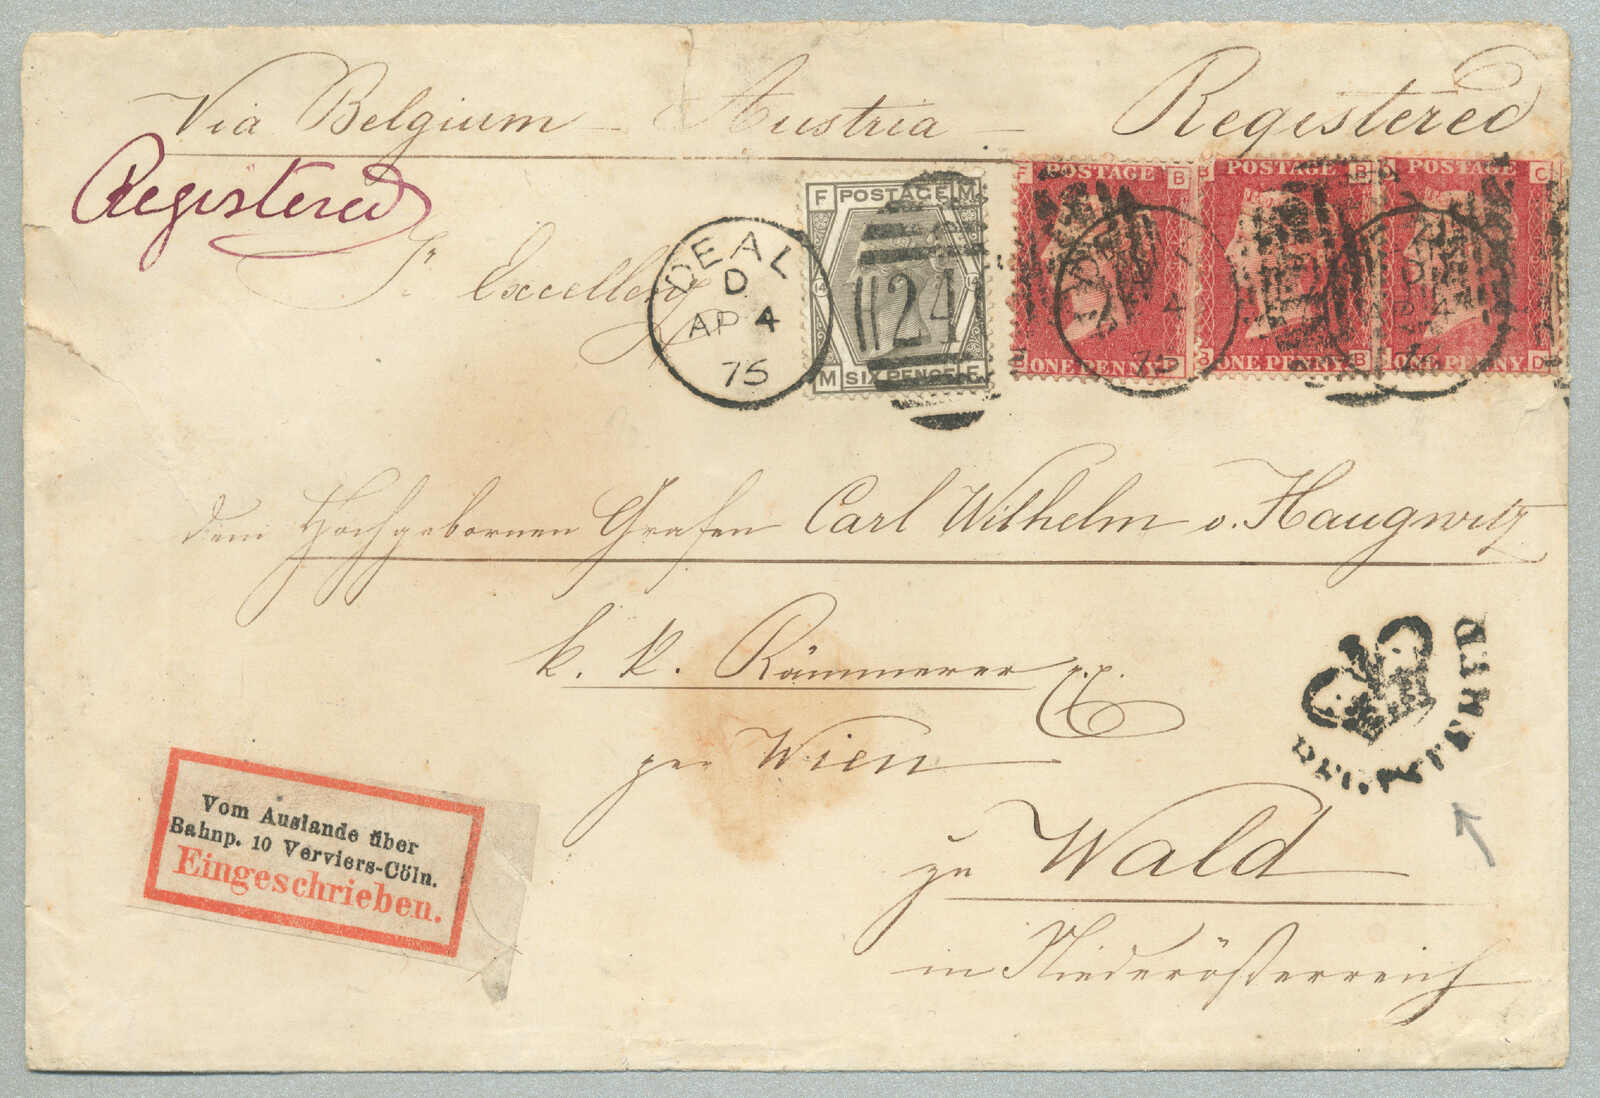 Via Belgium – Austria – Registered
Registered
Sr Excellenz
DEAL
D
AP 4
75
F POSTAGE M
14 14
M SIX PENCE F
24
F POSTAGE B
ONE PENNY
B POSTAGE B
B ONE PENNY B
POSTAGE C
ONE PENNY D
DEAL
D
AP 4
75
dem Hochgebornen Grafen Carl Wilhelm v. Haugwitz
k. k. Kämmerer
per Wien
zu Wald
in Niederößterreich
Vom Auslande über
Bahnp. 10 Verviers-Cöln.
Eingeschrieben.